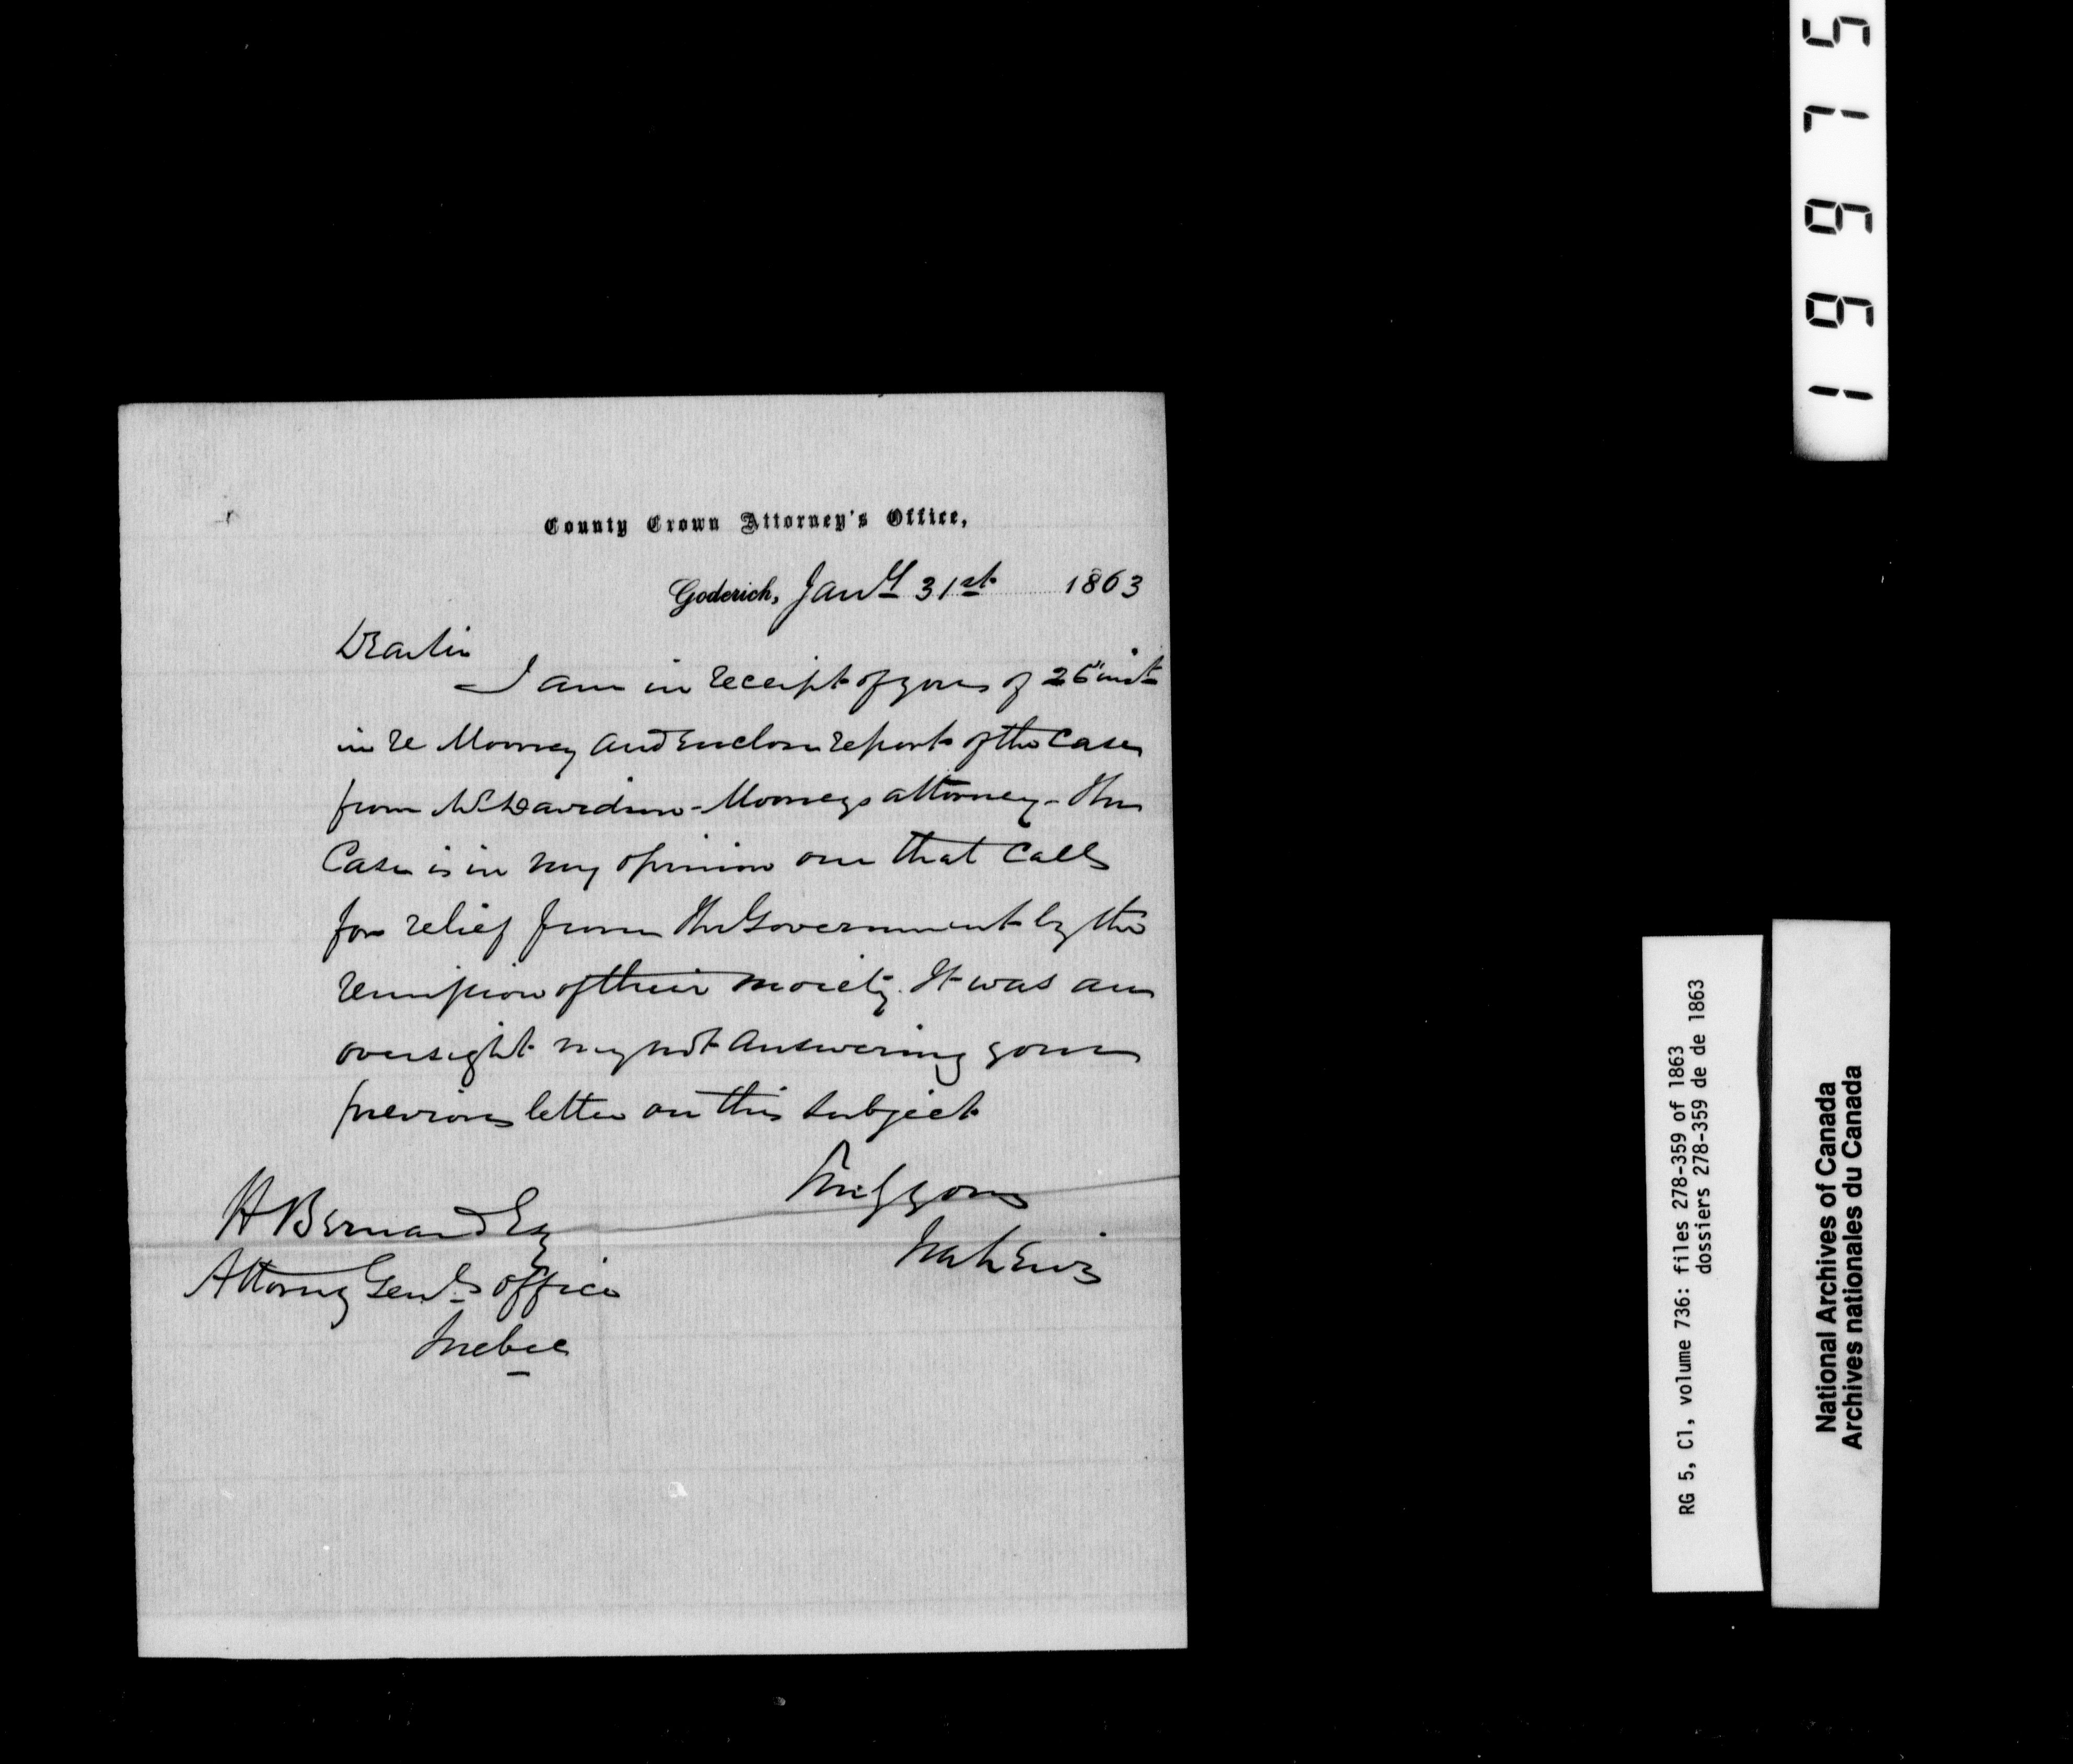 County Crown Attorney's Office,
Goderich, Jany 31st 1863
Dear Sir
I am in receipt of yours of 26" inst
in re Mooney and Enclose report of the Case
from Mr Davidson - Mooneys attorney - The
Case is in my opinion one that Calls
for relief from the Government by the
remission of their moiety. It was an
oversight my not answering your
previous letter on this subject
Truly yours
Ira Lewis
H Bernard Esq
Attorney Genls office
Quebec
RG 5, C1, volume 736: files 278-359 of 1863
dossiers 278-359 de de 1863
National Archives of Canada
Archives nationales du Canada